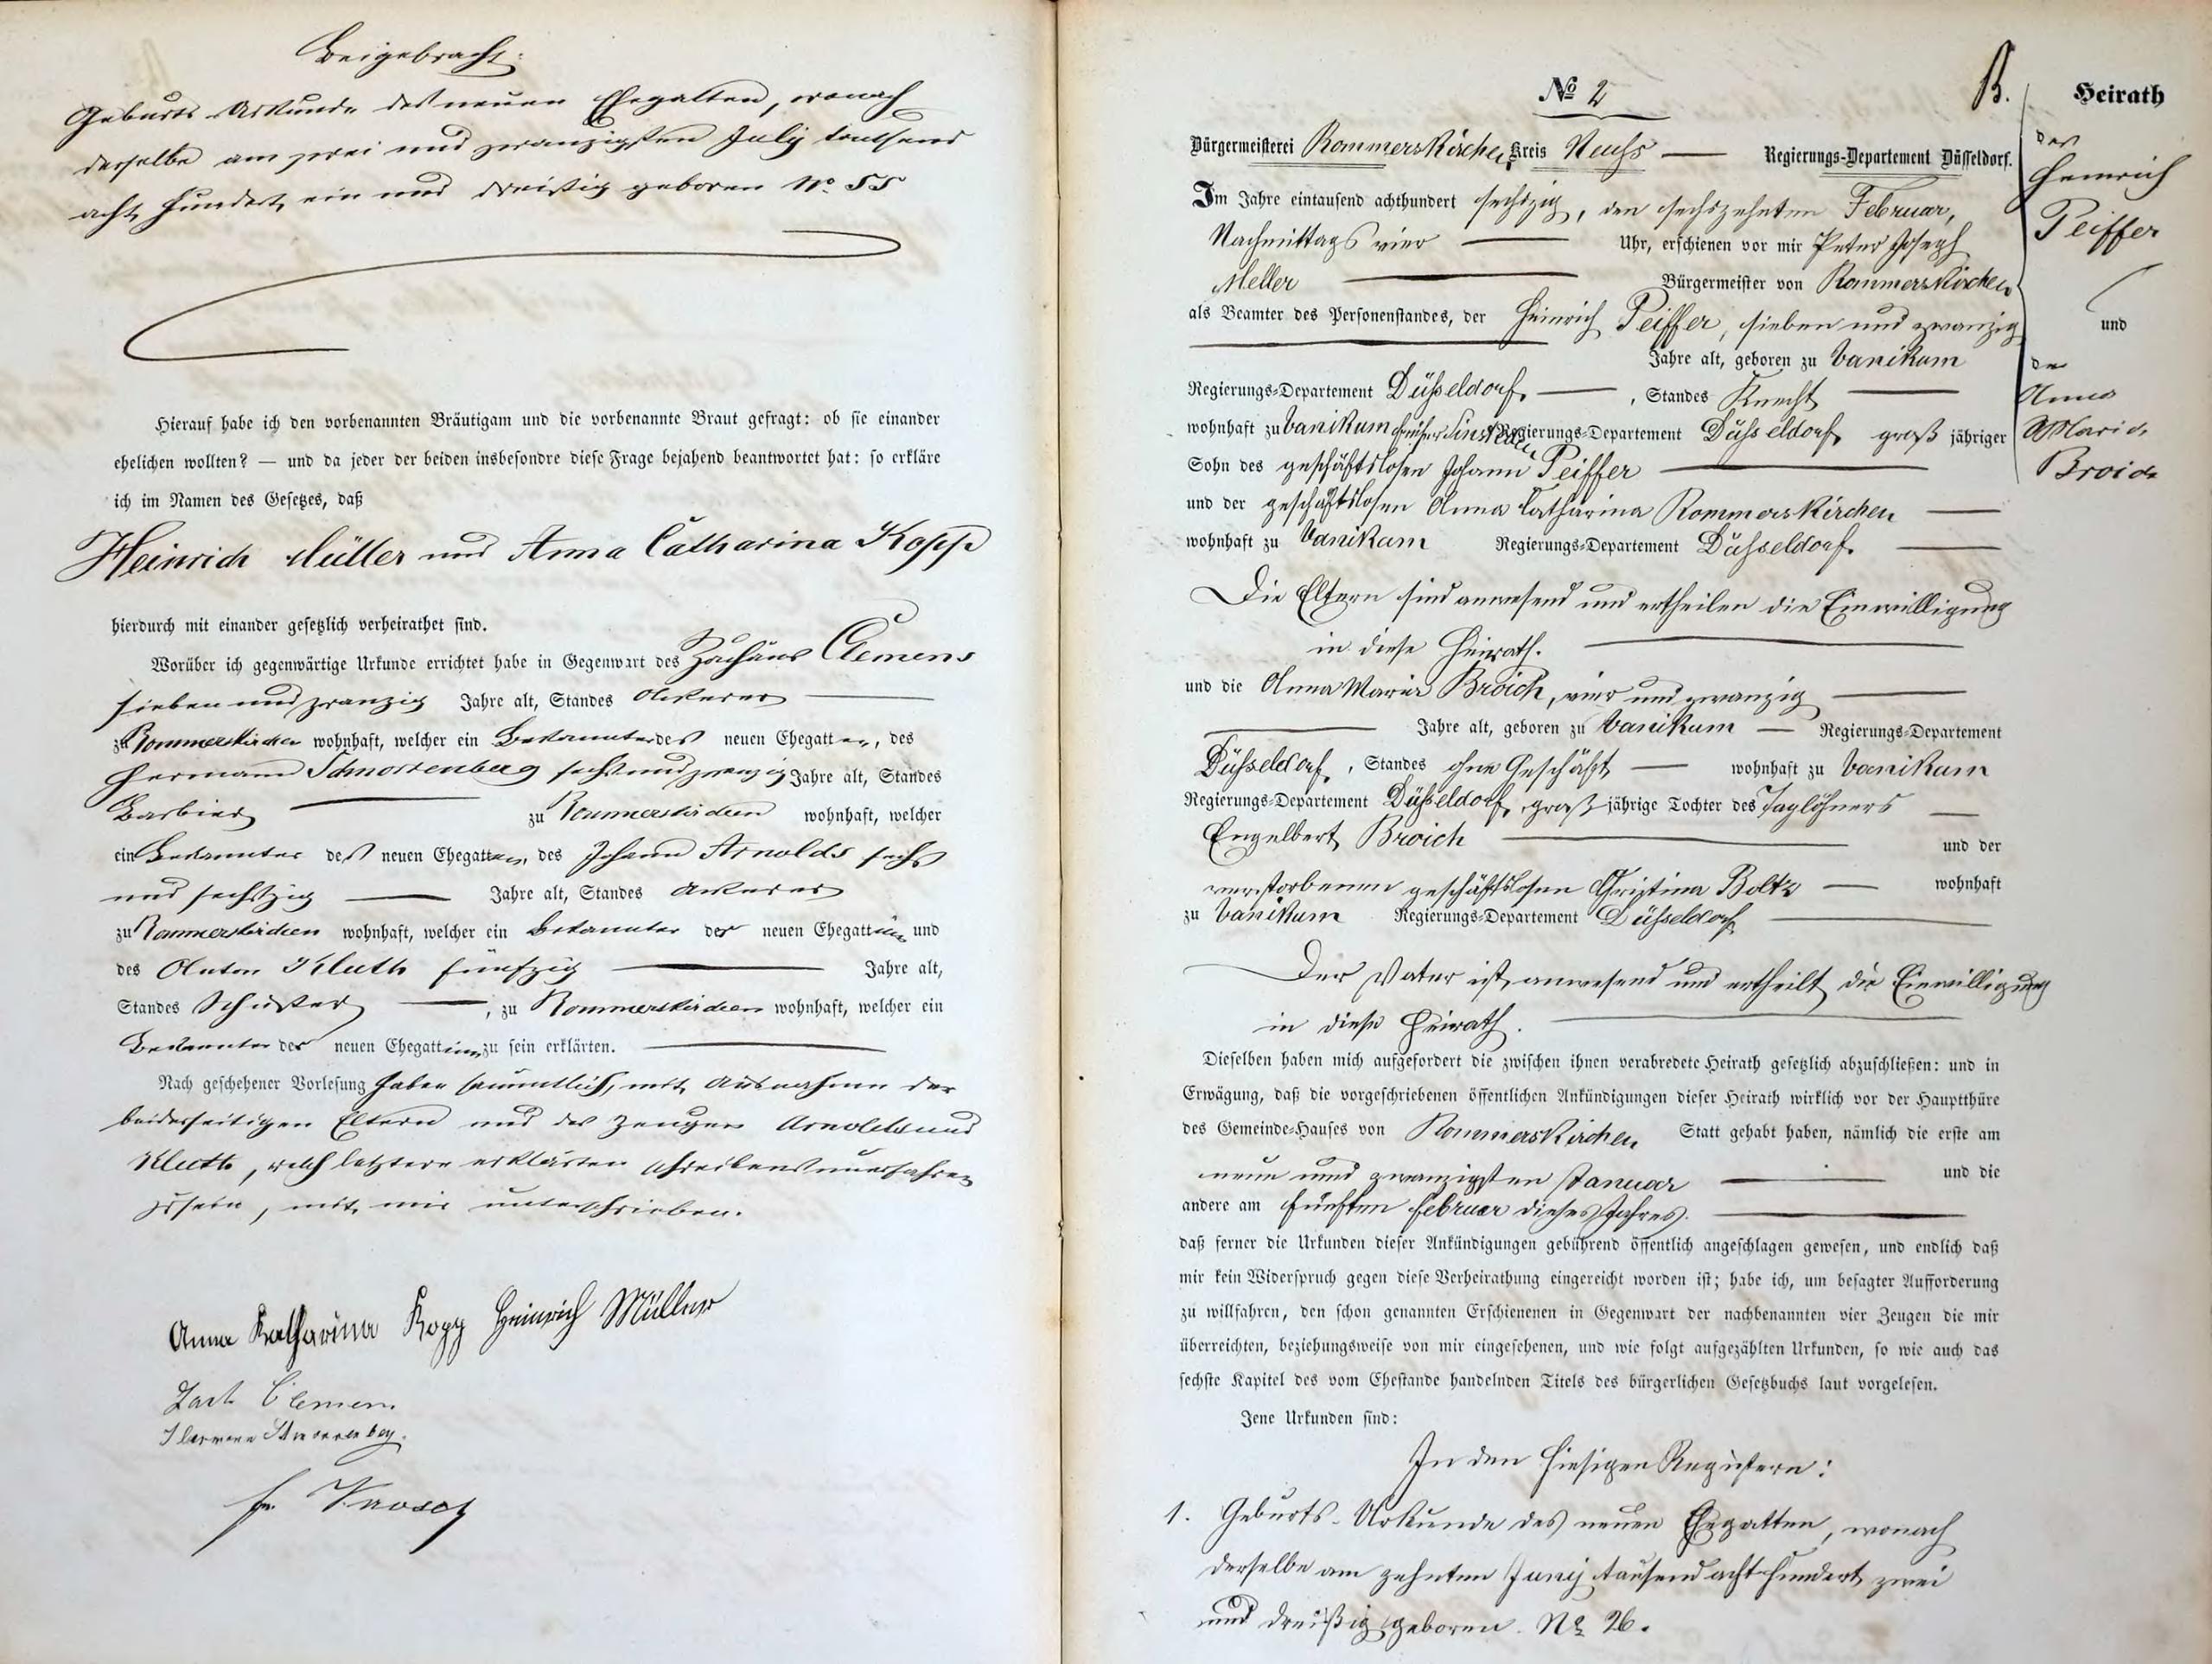 Beigebracht:
Geburts Urkunde des neuen Ehegatten, wonach
derselbe am zwei und zwanzigsten July tausend
acht hundert ein und dreißig geboren No 55
Hierauf habe ich den vorbenannten Bräutigam und die vorbenannte Braut gefragt: ob sie einander
ehelichen wollten? — und da jeder der beiden insbesondre diese Frage bejahend beantwortet hat: so erkläre
ich im Namen des Gesetzes, daß
Heinrich Müller und Anna Catharina Kopp
hierdurch mit einander gesetzlich verheirathet sind.
Worüber ich gegenwärtige Urkunde errichtet habe in Gegenwart des Zachäus Clemens
sieben und zwanzig Jahre alt, Standes Ackerer
zu Rommerskirchen wohnhaft, welcher ein Bekannter des neuen Ehegatten, des
Hermann Schnorrenberg sechs und zwanzig Jahre alt, Standes
Barbier zu Rommerskirchen wohnhaft, welcher
ein Bekannter des neuen Ehegatten, des Johann Arnolds sechs
und sechszig Jahre alt, Standes Ackerer
zu Rommerskirchen wohnhaft, welcher ein Bekannter der neuen Ehegattin und
des Anton Kluth fünfzig Jahre alt,
Standes Schuster, zu Rommerskirchen wohnhaft, welcher ein
Bekannter der neuen Ehegattin zu sein erklärten.
Nach geschehener Vorlesung haben sämmtlich, mit Ausnahme der
beiderseitigen Eltern und der Zeugen Arnolds und
Kluth, welch letztere erklärten schreibensunerfahren
zu sein, mit mir unterschrieben.
Anna Katharina Kopp Heinrich Müller
Zach Clemens
Hermann Schnorrenberg.
№ 2
B.
Heirath
Bürgermeisterei Rommerskirchen Kreis Neuß — Regierungs-Departement Düsseldorf.
Im Jahre eintausend achthundert sechszig, den sechszehnten Februar,
Nachmittags vier — Uhr, erschienen vor mir Peter Joseph
Meller — Bürgermeister von Rommerskirchen
als Beamter des Personenstandes, der Heinrich Peiffer, sieben und zwanzig
Jahre alt, geboren zu Vanikum
Regierungs-Departement Düsseldorf, — , Standes Knecht —
wohnhaft zu Vanikum früher Sinsteden Regierungs-Departement Düsseldorf, groß jähriger
Sohn des geschäftslosen Johann Peiffer —
und der geschäftslosen Anna Catharina Rommerskirchen —
wohnhaft zu Vanikum Regierungs-Departement Düsseldorf. —
Die Eltern sind anwesend und ertheilen die Einwilligung
in diese Heirath. —
und die Anna Maria Broich, vier und zwanzig —
— Jahre alt, geboren zu Vanikum — Regierungs-Departement
Düsseldorf, Standes ohne Geschäft — wohnhaft zu Vanikum
Regierungs-Departement Düsseldorf, groß jährige Tochter des Taglöhners —
Engelbert Broich — und der
verstorbenen geschäftslosen Christina Boltz — wohnhaft
zu Vanikum Regierungs-Departement Düsseldorf. —
Der Vater ist anwesend und ertheilt die Einwilligung
in diese Heirath. —
Dieselben haben mich aufgefordert die zwischen ihnen verabredete Heirath gesetzlich abzuschließen: und in
Erwägung, daß die vorgeschriebenen öffentlichen Ankündigungen dieser Heirath wirklich vor der Hauptthüre
des Gemeinde-Hauses von Rommerskirchen Statt gehabt haben, nämlich die erste am
neun und zwanzigsten Januar — und die
andere am fünften Februar dieses Jahres. —
daß ferner die Urkunden dieser Ankündigungen gebührend öffentlich angeschlagen gewesen, und endlich daß
mir kein Widerspruch gegen diese Verheirathung eingereicht worden ist; habe ich, um besagter Aufforderung
zu willfahren, den schon genannten Erschienenen in Gegenwart der nachbenannten vier Zeugen die mir
überreichten, beziehungsweise von mir eingesehenen, und wie folgt aufgezählten Urkunden, so wie auch das
sechste Kapitel des vom Ehestande handelnden Titels des bürgerlichen Gesetzbuchs laut vorgelesen.
Jene Urkunden sind:
In den hiesigen Registern:
1. Geburts-Urkunde des neuen Ehegatten, wonach
derselbe am zehnten Junij tausend acht hundert zwei
und dreißig geboren. No 26.
des
Heinrich
Peiffer
und
der
Anna
Maria
Broich